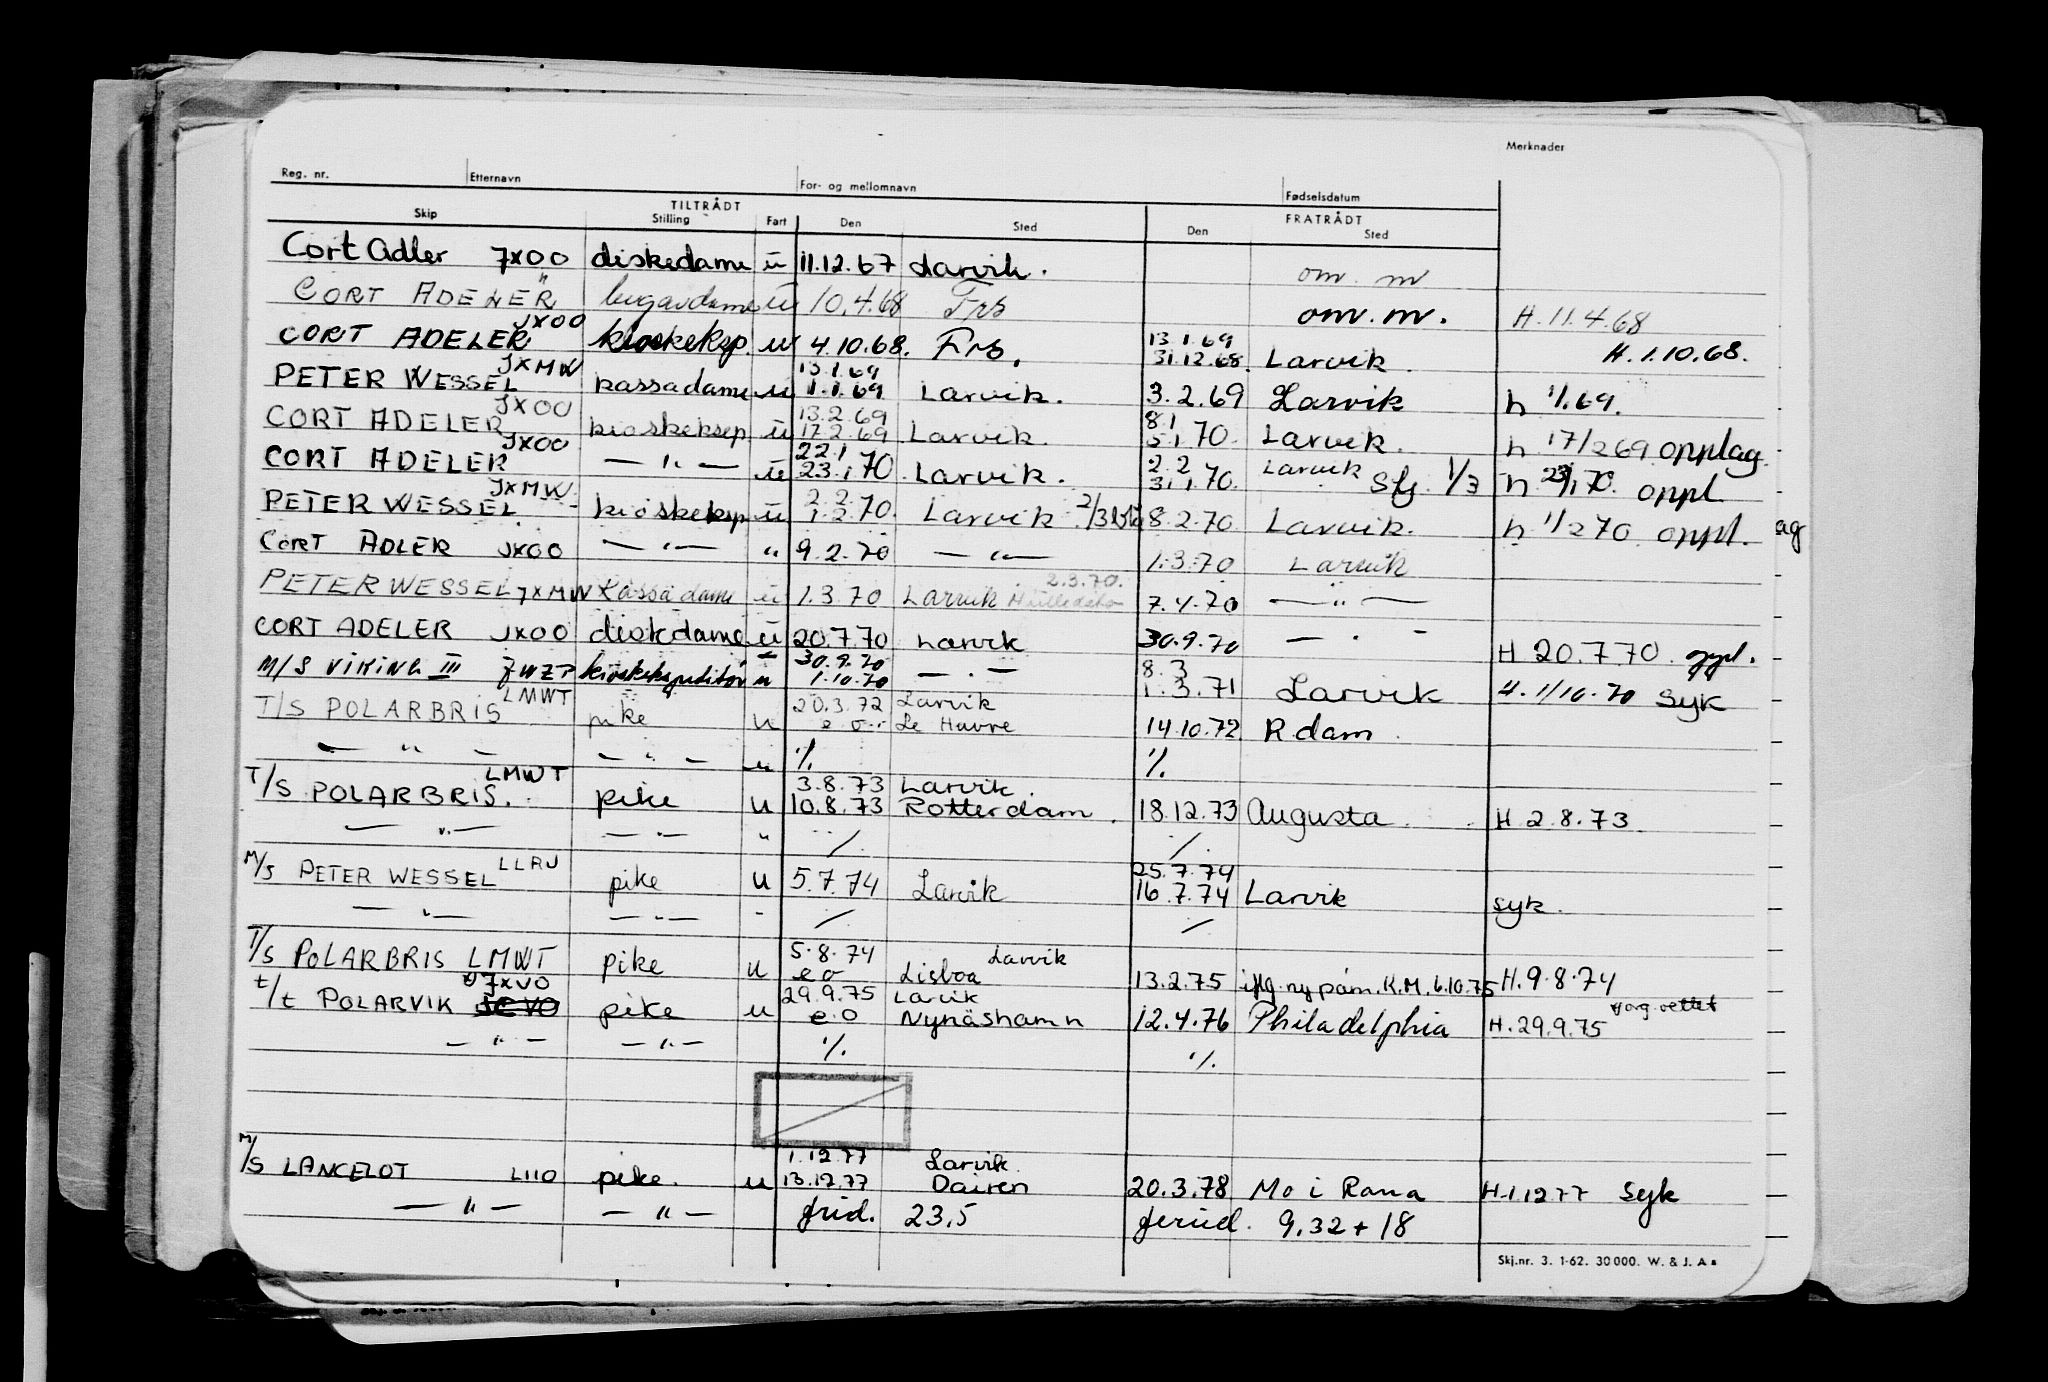 Merknader
Reg. nr. Etternavn For- og mellomnavn Fødselsdatum
TILTRÅDT FRATRÅDT
Skip Stilling Fart Den Sted Den Sted
Cort Adler JX00 diskedame u 11.12.67 Larvik. om. m
CORT ADELER " lugardame u 10.4.68 Frs om.m. H.11.4.68
CORT ADELER JX00 kioskeksp. u 4.10.68. Frs. 13.1.69 31.12.68. Larvik. H.1.10.68.
PETER WESSEL JXMW kassadame u 13.1.69 1.1.69 Larvik. 3.2.69 Larvik h 1/1.69.
CORT ADELER JX00 kioskeksp u 13.2.69 17.2.69 Larvik. 8.1 5.1.70. Larvik. h 17/2 69 opplag.
CORT ADELER JX00 — " — u 22.1 23.1.70 Larvik. 2.2 31.1.70. Larvik Sfj. 1/3 h 23/1 70. oppl.
PETER WESSEL JXMW kioskeksp u 2.2 1.2.70. Larvik 2/3 8.2.70 Larvik. h 1/2 70 oppl. ag
CORT ADLER JX00 — " — " 9.2.70 — " — 1.3.70 Larvik
PETER WESSEL JXMW Kassadame u 1.3.70 Larvik 2.3.70. 7.4.70 — " —
CORT ADELER JX00 diskdame u 20.7.70 Larvik 30.9.70 — " — H 20.7.70. oppl.
M/S VIKING III JWZP kioskekspeditør u 30.9.70 1.10.70 — " — 8.3 1.3.71 Larvik H. 1/10.70 syk
T/S POLARBRIS LMWT pike u 20.3.72 Larvik
e.o. Le Havre 14.10.72 R.dam.
— " — — " — u ./. ./.
T/S POLARBRIS. LMWT pike u 3.8.73 Larvik.
10.8.73 Rotterdam. 18.12.73 Augusta. H 2.8.73.
— " — — " — " ./. ./.
M/S PETER WESSEL LLRU pike u 5.7.74 Larvik 25.7.74 16.7.74 Larvik syk.
— " — — " — - ./. ./.
T/S POLARBRIS LMWT pike u 5.8.74 Larvik
e o Lisboa 13.2.75 iflg. ny påm. K.M. 6.10.75 H.9.8.74
t/t POLARVIK JXVO pike u 29.9.75 Larvik
e.o Nynäshamn 12.4.76 Philadelphia H.29.9.75 rettet
— " — — " — ./. ./.
M/S LANCELOT LIIO pike. u 1.12.77 Larvik.
13.12.77 Dairen 20.3.78 Mo i Rana H.1.12.77 syk
— " — — " — frid. 23,5 feried. 9,32 + 18
Skj.nr. 3. 1-62. 30000. W. & J. A s